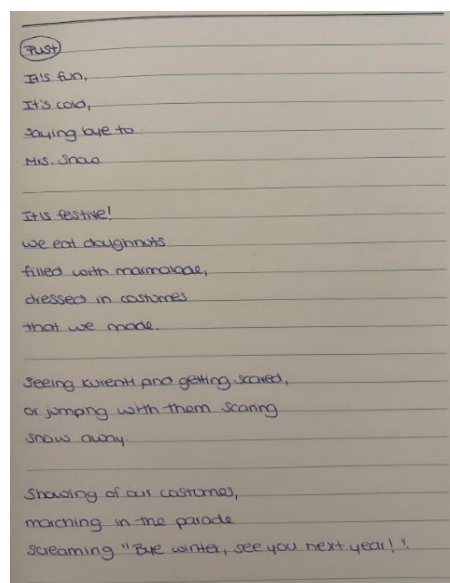 Pust
It's fun,
It's cold,
saying bye to
Mrs. Snow
It is festive!
we eat doughnuts
filled with marmalade,
dressed in costumes
that we made.
Seeing kurenti and getting scared,
or jumping with them scaring
snow away.
Showing of our costumes,
marching in the parade
screaming "Bye winter, see you next year!".